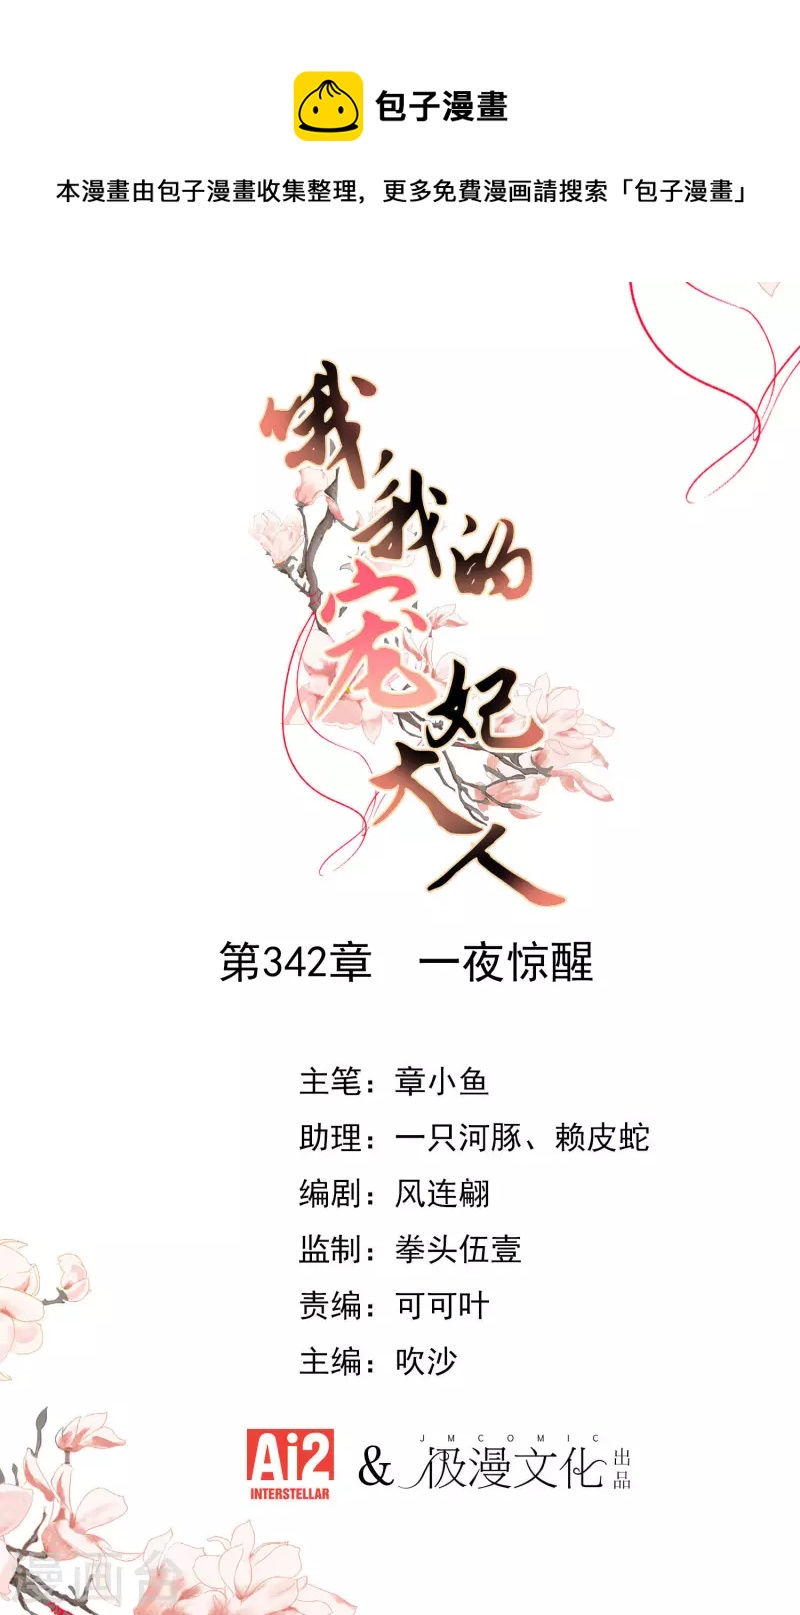 包子漫畫
本漫畫由包子漫畫收集整理，更多免費漫画請搜索「包子漫畫」
哦，我的
宠妃
大人
第342章 一夜惊醒
主笔：章小鱼
助理：一只河豚、赖皮蛇
编剧：风连翩
监制：拳头伍壹
责编：可可叶
主编：吹沙
JMCOMIC
Ai2 & 极漫文化 出品
INTERSTELLAR
漫画台